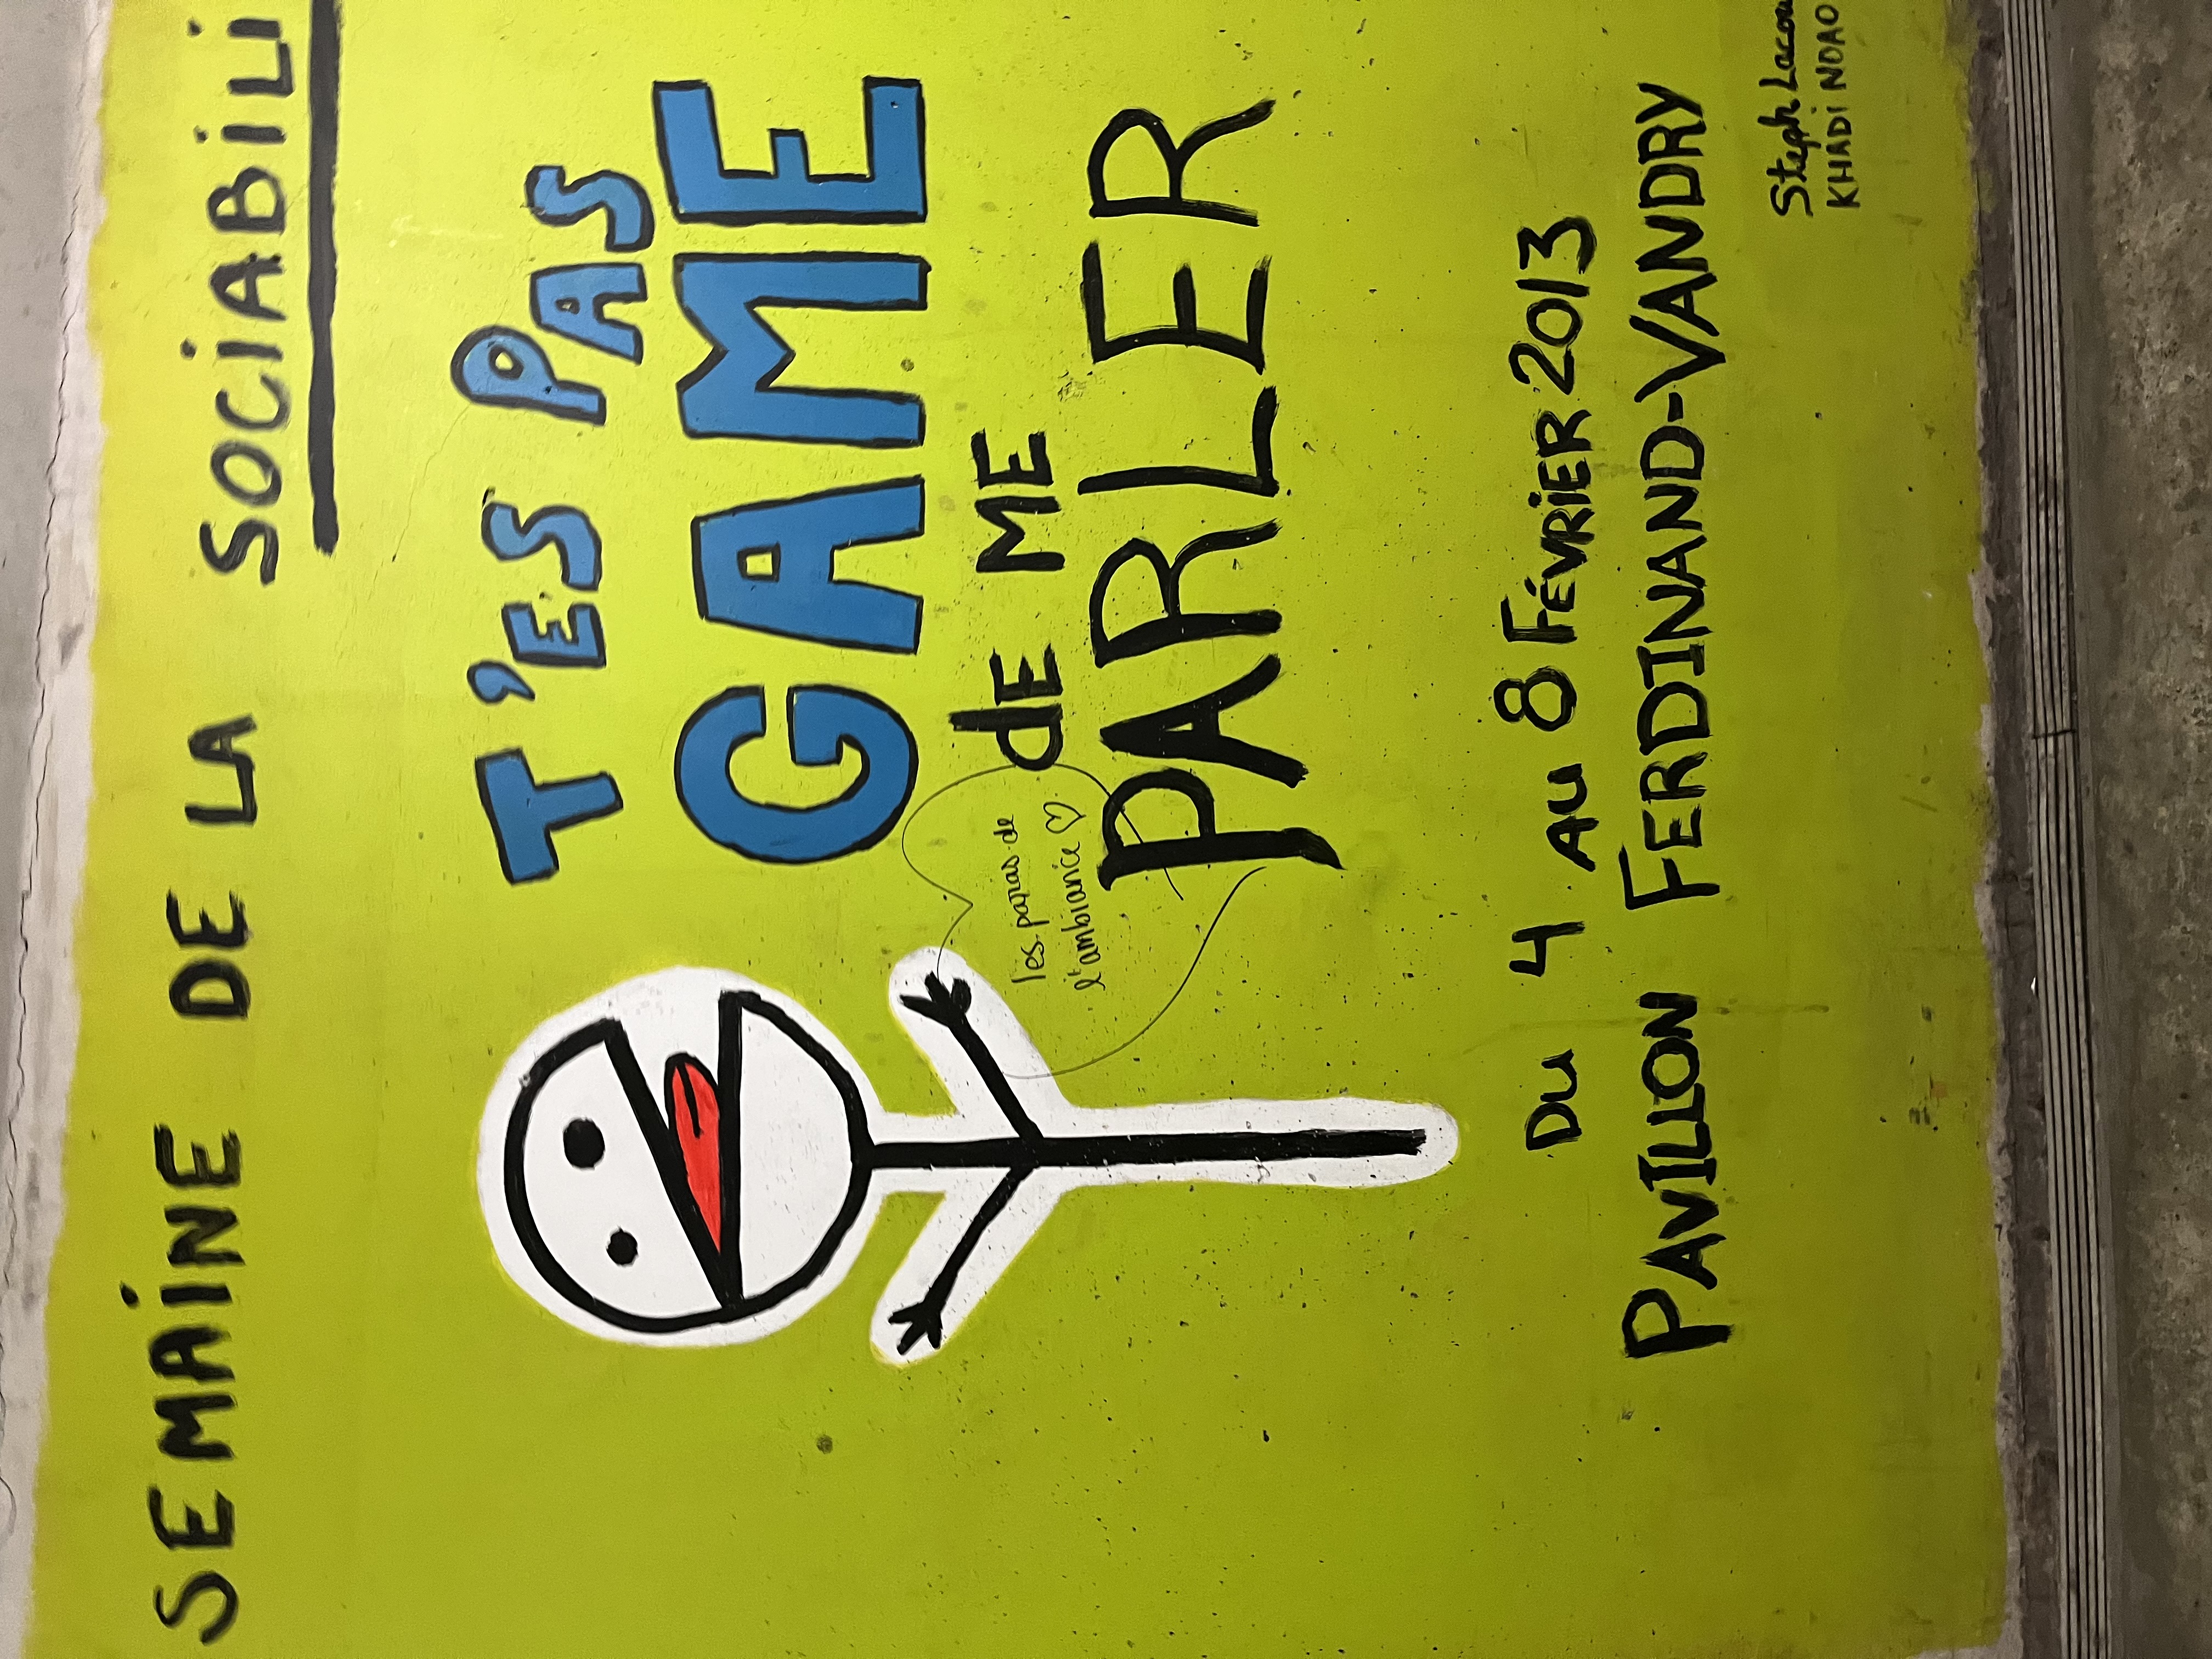 SEMAINE DE LA SOCIABILI
T'ES PAS
GAME
de ME
PARLER
les papas de
l'ambiance ♡
Du 4 AU 8 FÉVRIER 2013
PAVILLON FERDINAND-VANDRY
Steph Lacou
KHADI NDAO